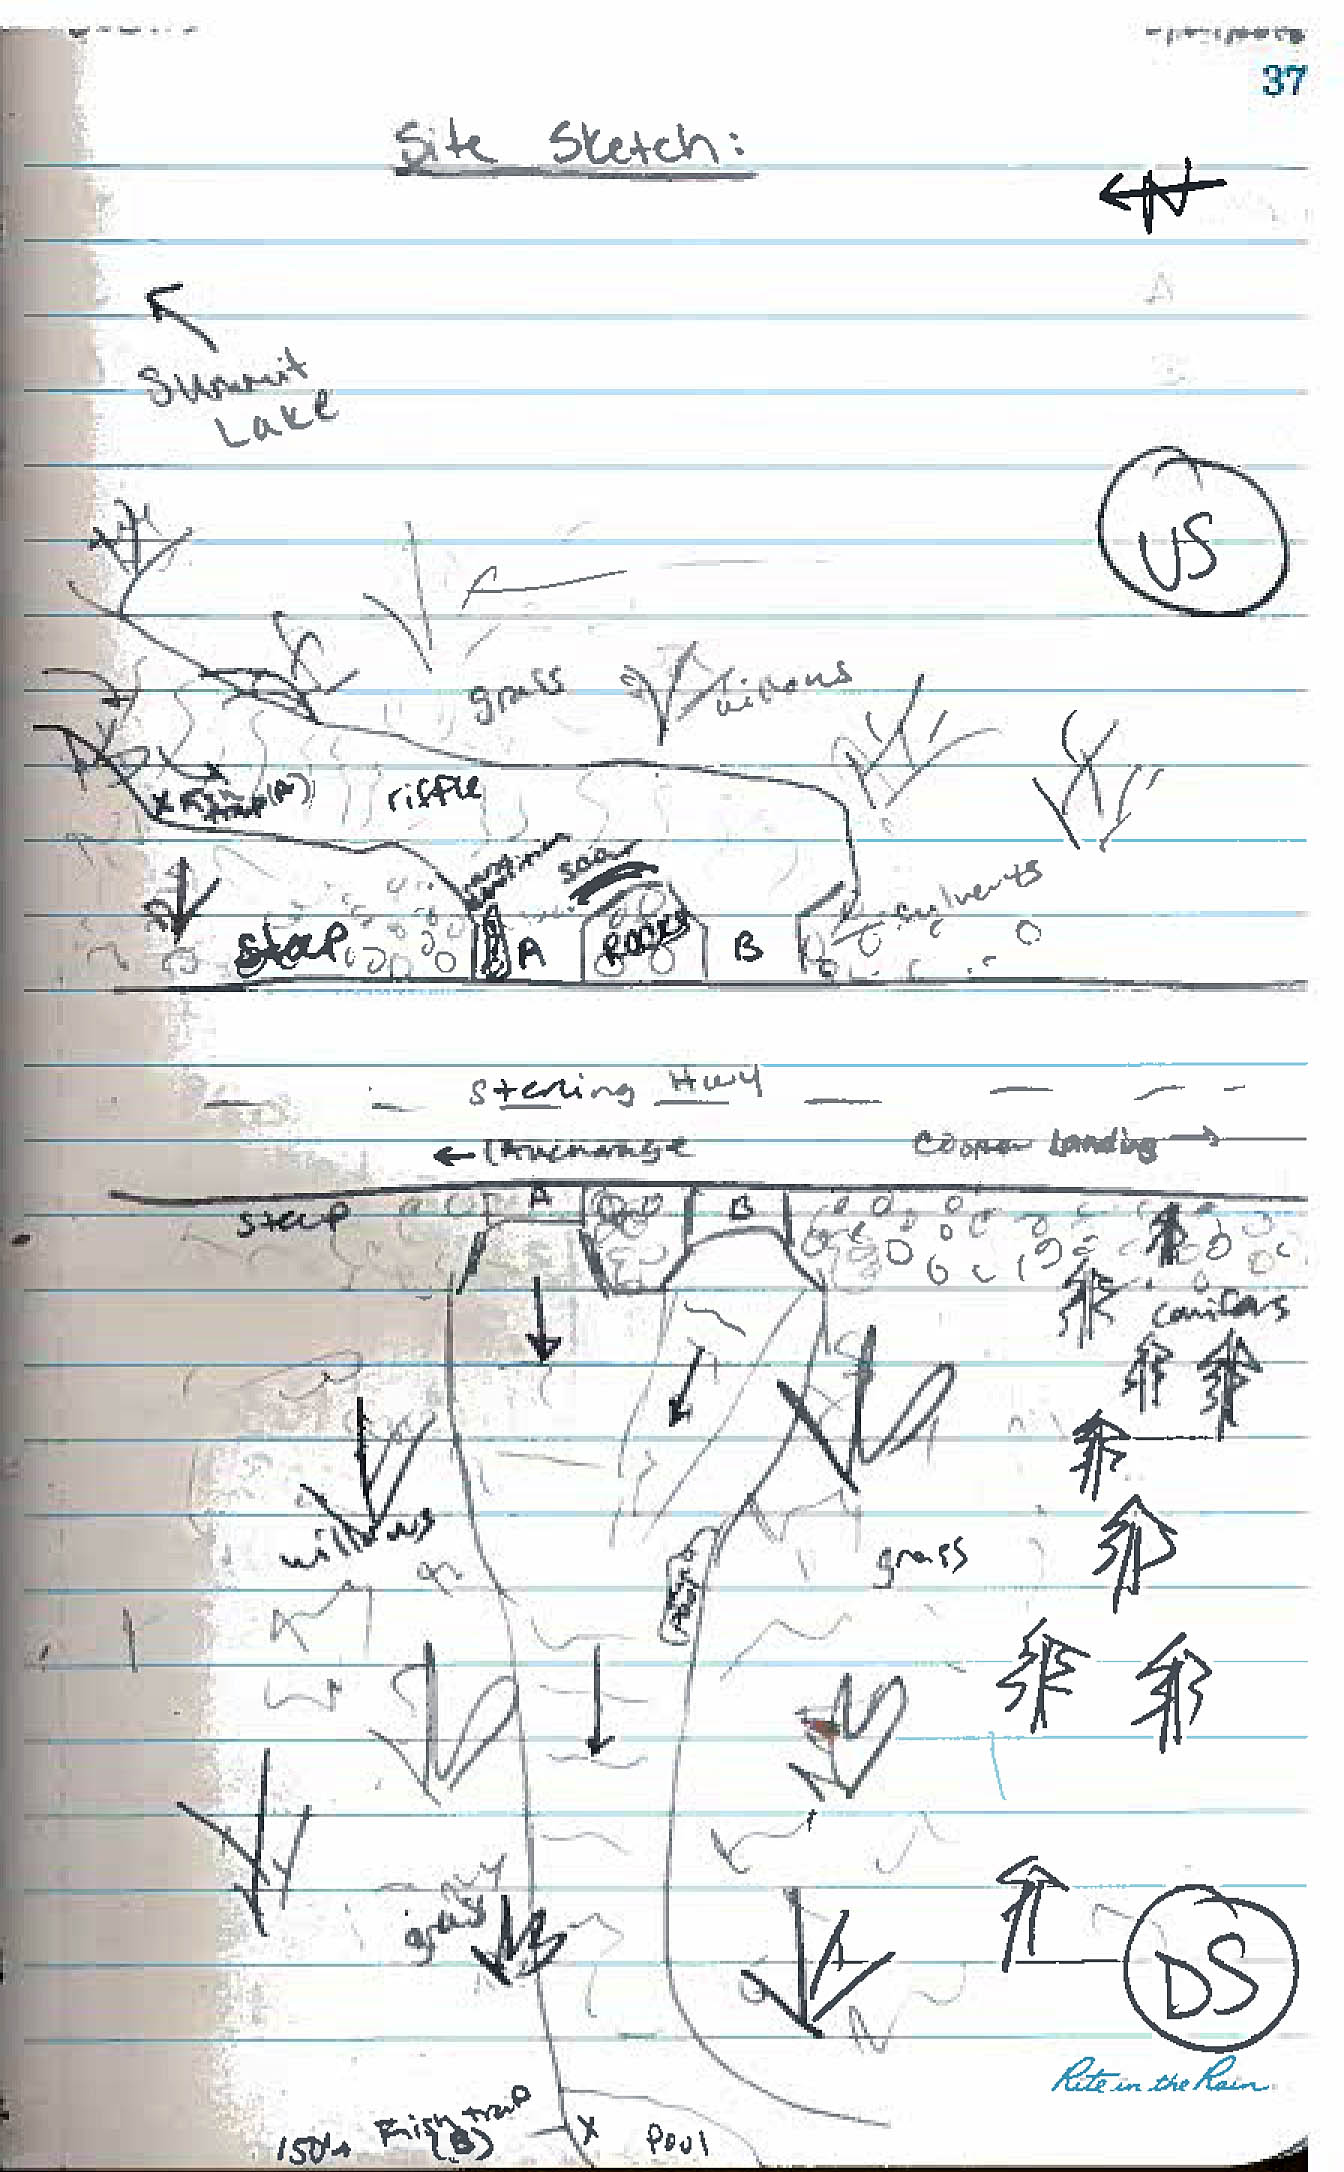 37
Site Sketch:
N
Summit
Lake
US
grass
willows
riffle
x Fish
trap (A)
scour
culverts
Steep
A
Rocks
B
Sterling Hwy
← Anchorage
Cooper Landing →
A
B
steep
conifers
willows
grass
grassy
DS
Rite in the Rain
Fish trap
(B)
X
Pool